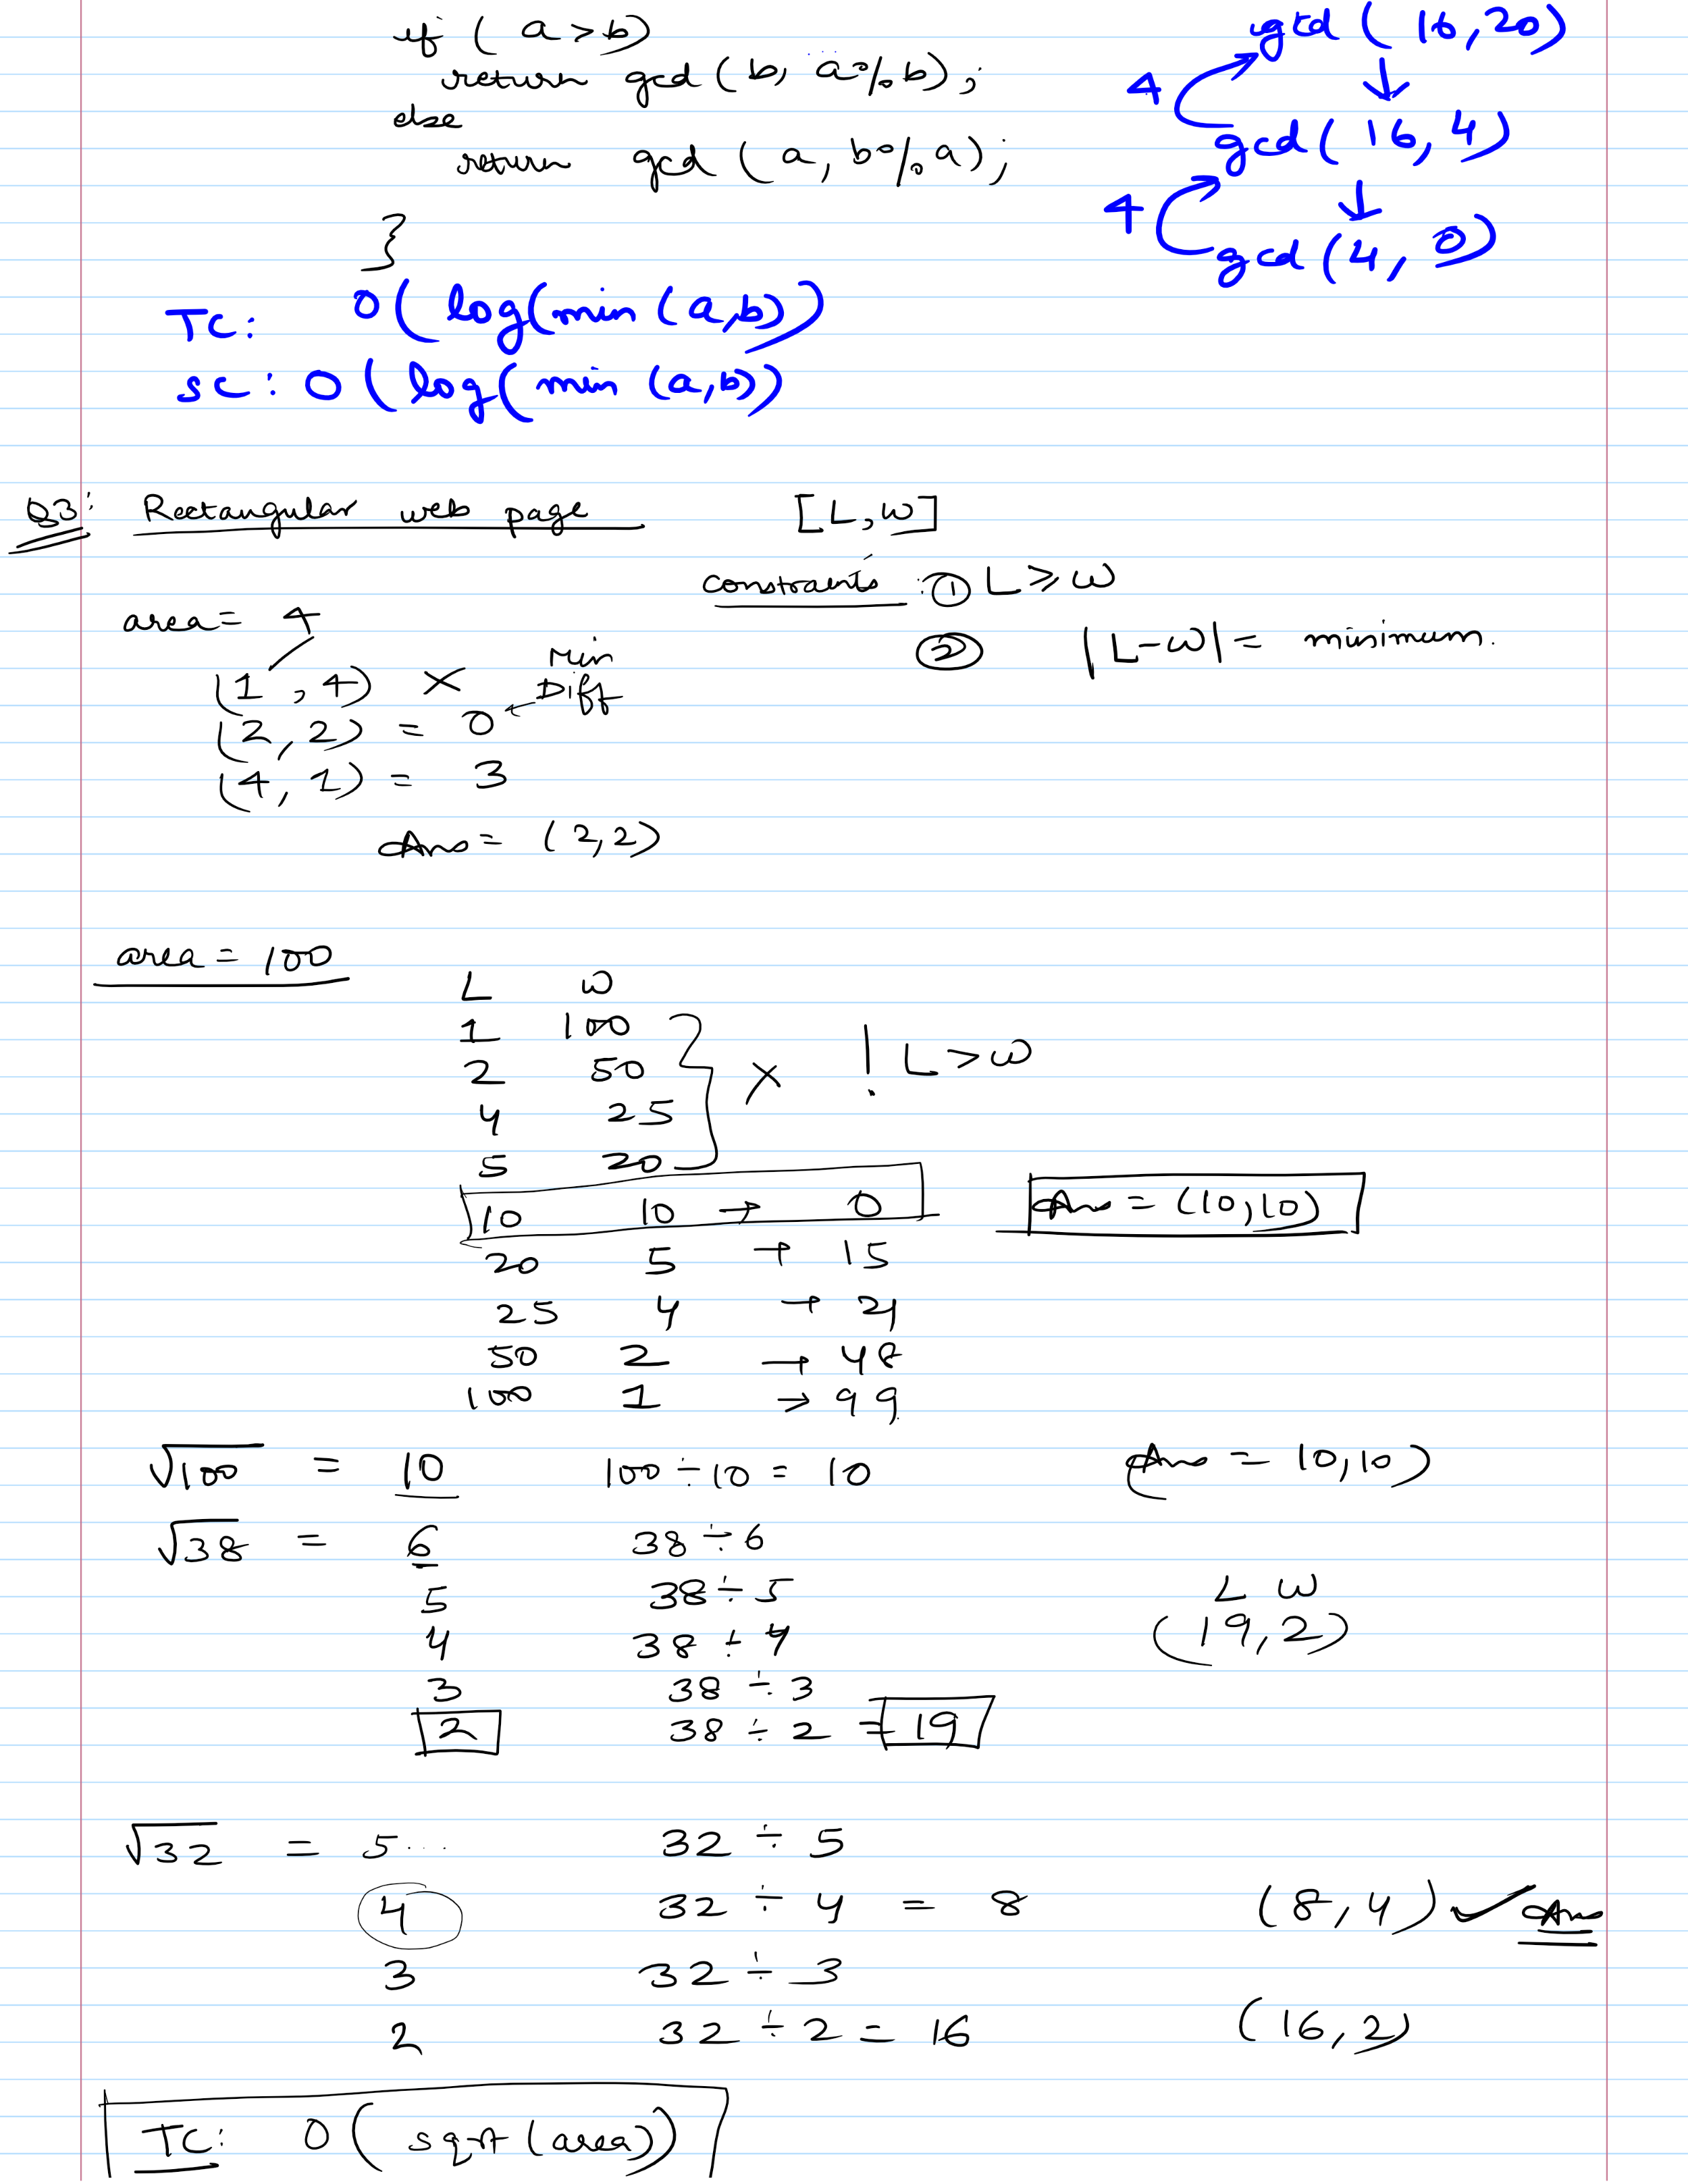 if ( a > b)
return gcd ( b, a%b);
else
return gcd ( a, b%a);
}
gcd ( 16,20)
↓
4
gcd( 16,4)
4 ↓
gcd(4, 0)
TC: O( log(min (a,b))
SC: O( log( min (a,b))
Q3: Rectangular web page [L,W]
constraints : ① L ⩾ W
② |L-W| = minimum.
area = 4
(1 ,4) ✗ Min
(2,2) = 0 ← Diff
(4, 1) = 3
Ans = (2,2)
area = 100
L W
1 100
2 50 ✗ ! L > W
4 25
5 20
10 10 → 0 Ans = (10,10)
20 5 → 15
25 4 → 21
50 2 → 48
100 1 → 99
√100 = 10 100 ÷ 10 = 10 Ans = 10,10)
√38 = 6 38 ÷ 6
5 38 ÷ 5 L W
4 38 ÷ 4 (19,2)
3 38 ÷ 3
2 38 ÷ 2 = 19
√32 = 5... 32 ÷ 5
4 32 ÷ 4 = 8 (8,4) ✓ Ans
3 32 ÷ 3
2 32 ÷ 2 = 16 (16,2)
TC: O( sqrt (area))